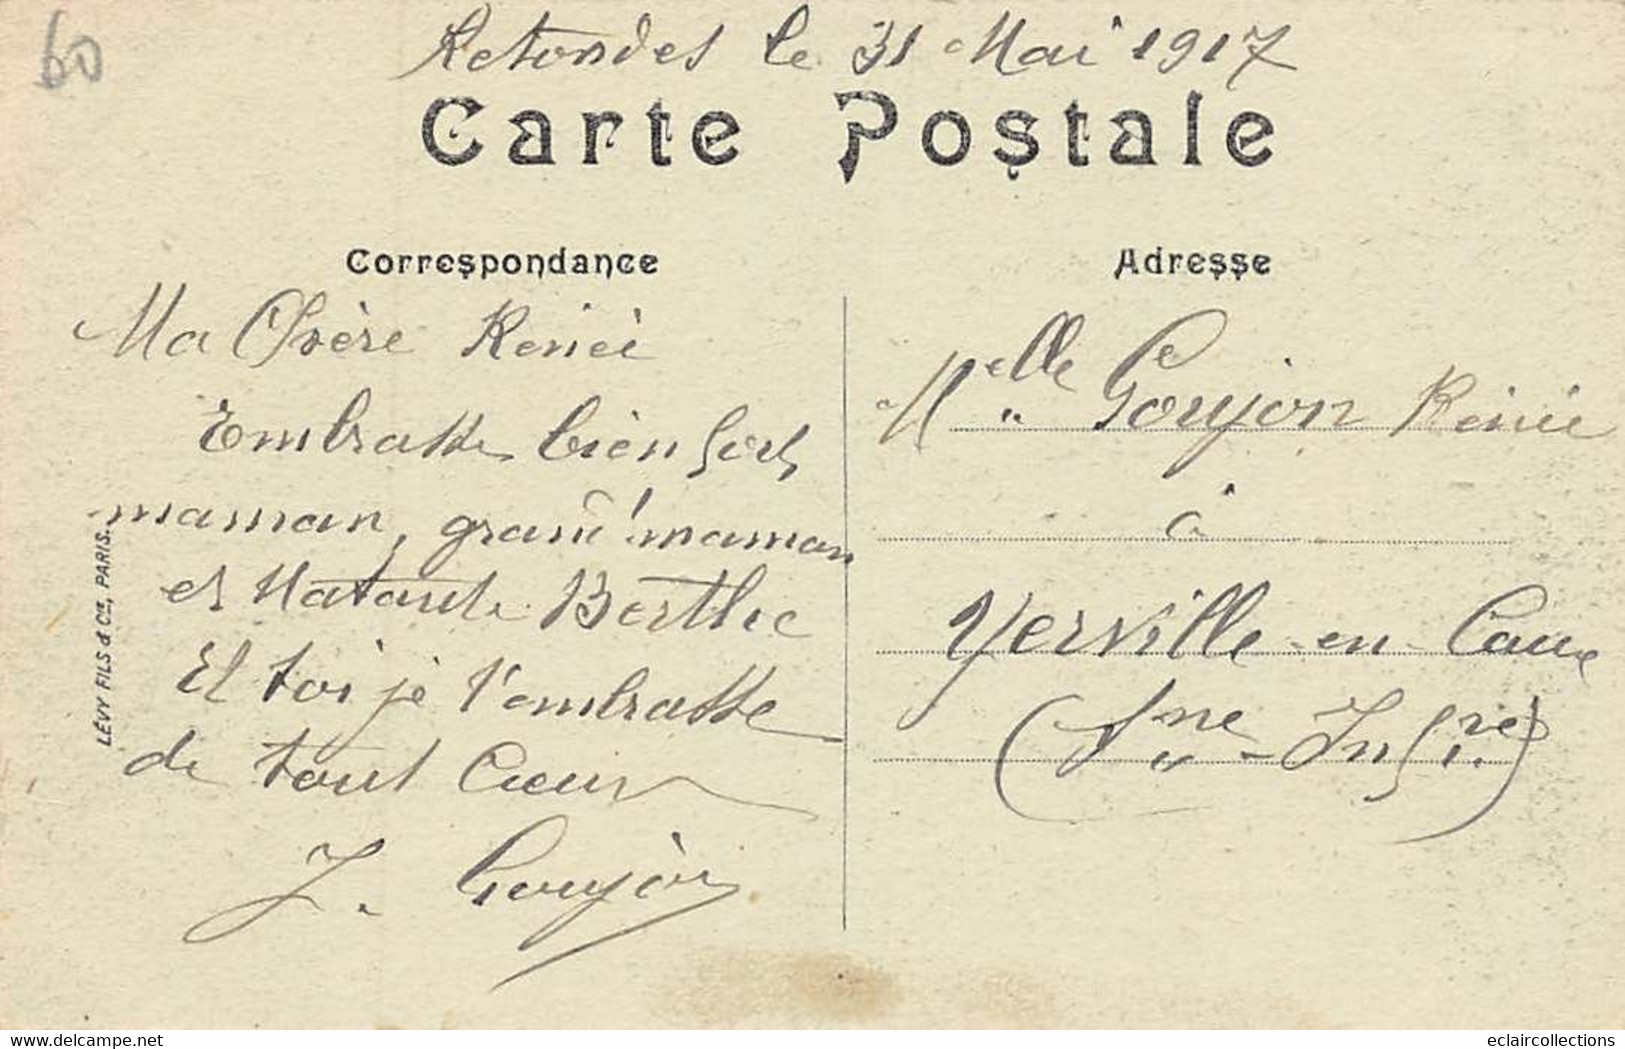 60
Rethondes le 31 Mai 1917
Carte Postale
Correspondance
Adresse
Ma Chère Renée
Embrasse bien fort
maman, grand'maman
et Tatante Berthe
Et toi je t'embrasse
de tout Cœur
J. Goujon
LÉVY FILS & Cie, PARIS.
Melle Goujon Renée
à
Yerville en Caux
(Sne-Infre)
delcampe.net
eclaircollections